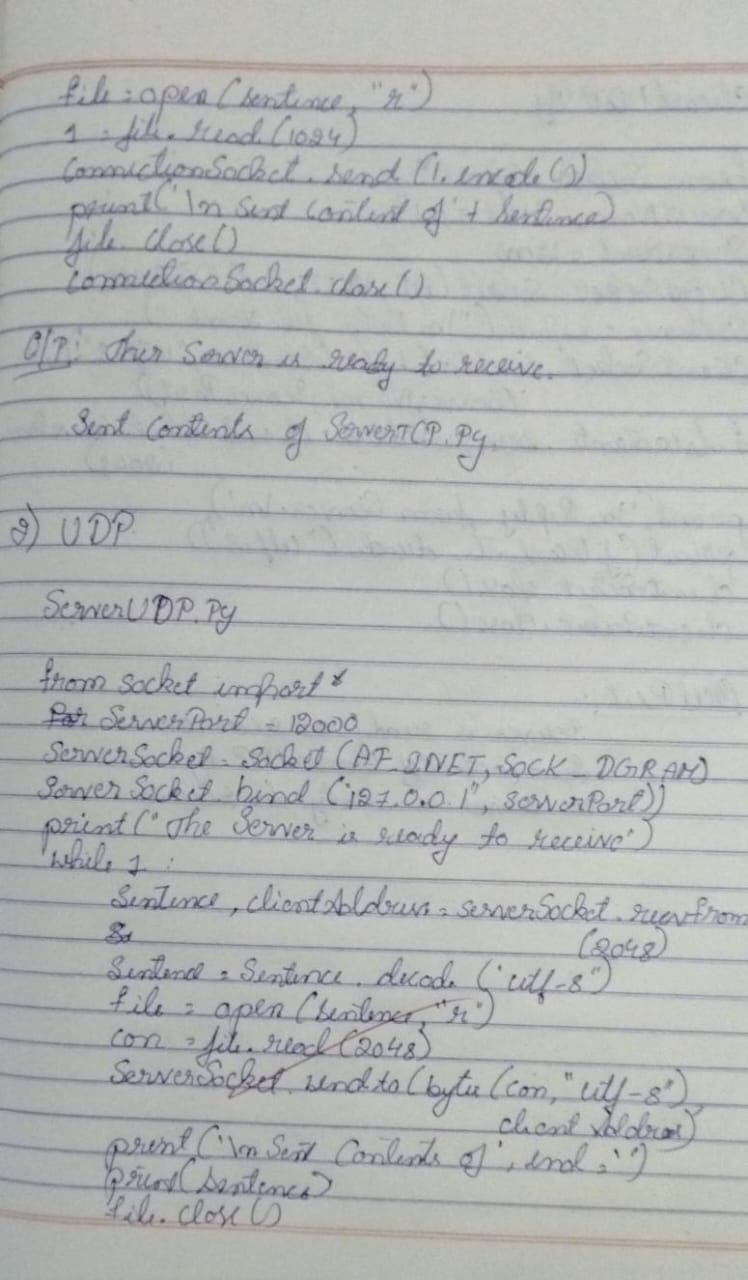 file = open (sentence, "r")
l = file.read (1024)
connectionSocket.send (l.encode())
print ('\n Sent content of ' + Sentence)
file.close()
connectionSocket.close()
O/P: Ther Server is ready to receive.
Sent contents of ServerTCP.Py
2) UDP
ServerUDP.Py
from socket import *
ServerPort = 12000
ServerSocket = Socket (AF_INET, SOCK_DGRAM)
Server Socket.bind ("127.0.0.1", serverPort))
print (" The Server is ready to receive")
while 1 :
Sentence, clientAddress = serverSocket.recvfrom
(2048)
Sentend = Sentence.decode ("utf-8")
file = open (sentence, "r")
con = file.read (2048)
ServerSocket.sendto (bytes (con, "utf-8"),
client Address)
print ('\n Sent Contents of ', end = ' ')
print (sentence)
file.close ()